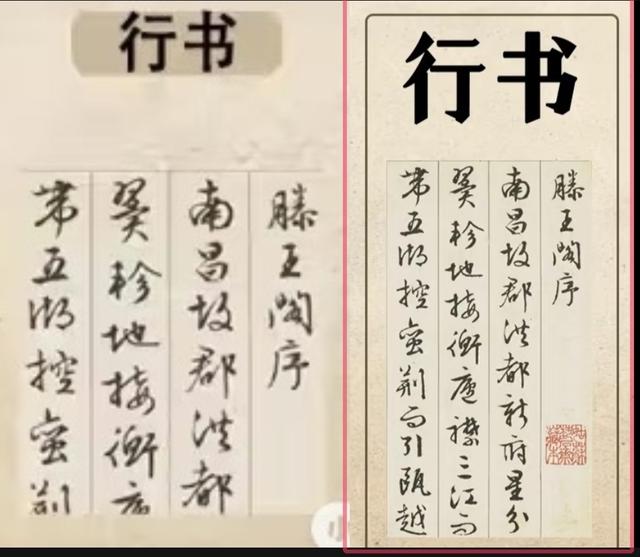 行书
滕王阁序
南昌故郡洪都
翼轸地接衡庐
带五湖控蛮荆
行书
滕王阁序
南昌故郡洪都新府星分
翼轸地接衡庐襟三江而
带五湖控蛮荆而引瓯越